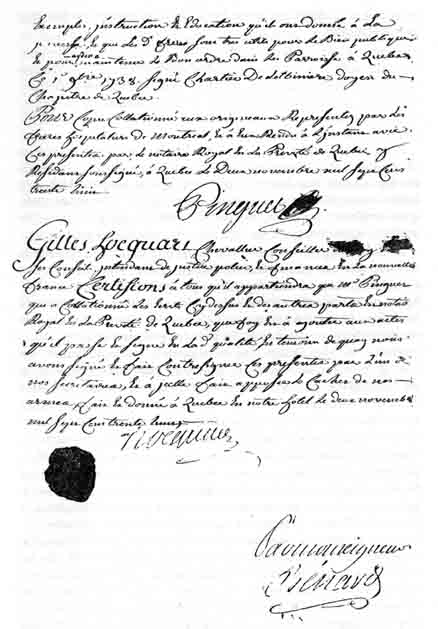 Exemples, instruction & Education qu'ils ont donné à la
jeunesse, & que les d. freres sont tres utils pour le Bien publique
& pour maintenir le Bon ordre dans les Parroisse à Quebec
le 1er 9bre 1738. signé Chartier De Lotbiniere doyen du
Chapitre de Quebec.
Pour Copie Collationné aux originaux Representes par les
freres hospitaliers de Montreal, & à Eux Rendu à L'instant avec
Ces presentes par le notaire Royal de La Prevôté de Quebec y
Residant soussigné, à Quebec le Deux novembre mil sept Cens
trente huit
Pinguet
Gilles hocquart Chevallier Conseiller du Roy en
ses Conseils, intendant de justice police & finances en La nouvelle
france Certifions à tous qu'il appartiendra que Me Pinguet
qui a Collationné les Ecrits Cy dessus & des autres parts est notre
Royal en La Prevôté de Quebec, que foy est à ajouter aux actes
qu'il passe & signe en La d. qualité, en temoin de quoy nous
avons signé & fait Contresigner Ces presentes par L'un de
nos secretaires, & à icelle fait apposer le Cachet de nos
armes, fait & donné à Quebec En notre hotel le deux novembre
mil sept Cent trente huit
Hocquart
Par monseigneur